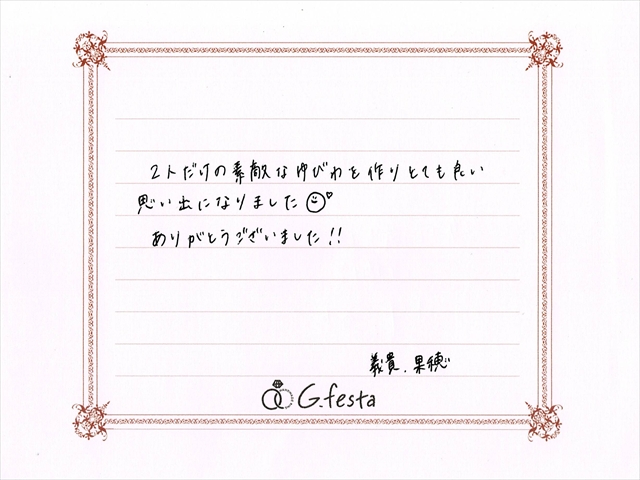 2人だけの素敵なゆびわを作りとても良い
思い出になりました
ありがとうございました!!
義貴.果穂
G.festa